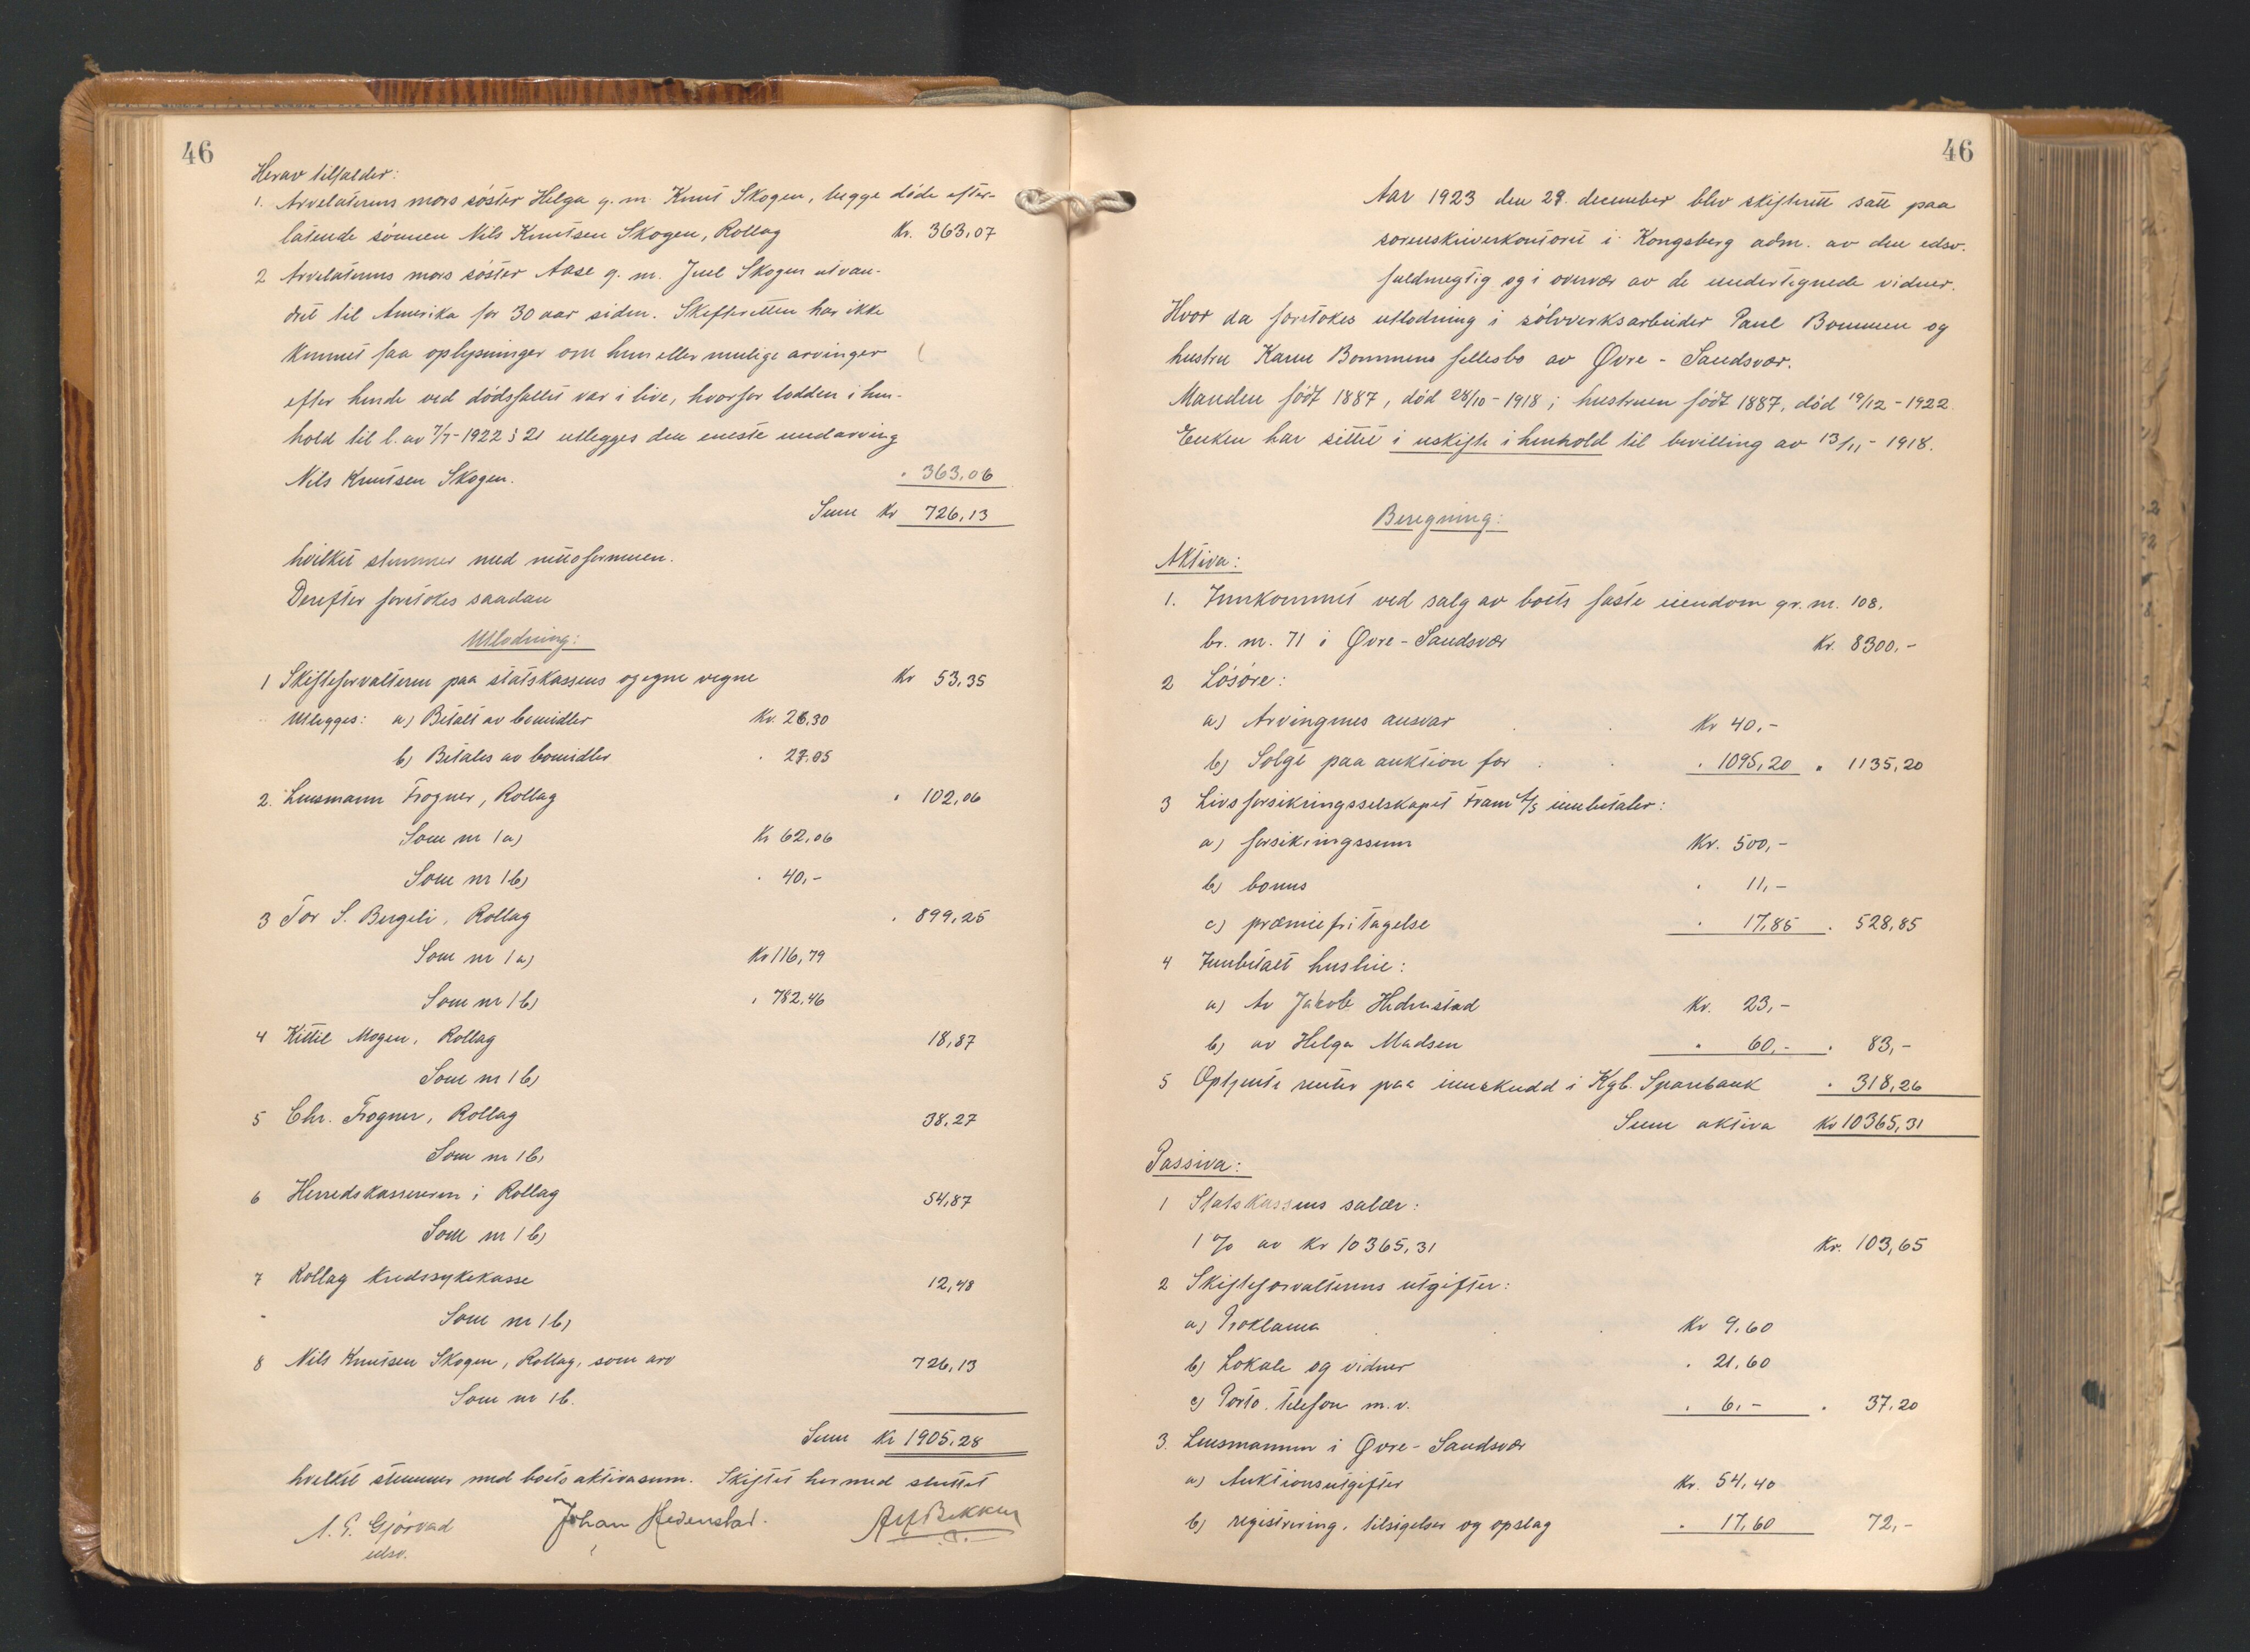 46
Herav tilfalder:
1. Arvelaterens mors søster Helga g. m. Knut Skogen, begge døde efter-
latende sønnen Nils Knutsen Skogen, Rollag Kr. 363,07
2 Arvelaterens mors søster Aase g. m. Juel Skogen utvan-
dret til Amerika for 30 aar siden. Skifteretten har ikke
kunnet faa oplysninger om hun eller mulige arvinger
efter hende ved dødsfallet var i live, hvorfor lodden i hen-
hold til l. av 7/7-1922 § 21 utlegges den eneste medarving
Nils Knutsen Skogen. " 363,06
Sum Kr 726,13
hvilket stemmer med nettoformuen.
Derefter foretokes saadan
Utlodning:
1 Skifteforvalteren paa statskassens og egne vegne Kr 53,35
Utlegges: a) Betalt av bomidler Kr. 26,30
b) Betales av bomidler " 27,05
2. Lensmann Frogner, Rollag " 102,06
Som nr 1 a) Kr 62,06
Som nr 1 b) " 40,-
3 Tor S. Bergeli, Rollag " 899,25
Som nr 1 a) Kr 116,79
Som nr 1 b) " 782,46
4 Kittil Mogen, Rollag 18,87
Som nr 1 b)
5 Chr. Frogner, Rollag 38,27
Som nr 1 b)
6 Herredskassereren i Rollag 54,87
Som nr 1 b)
7 Rollag kredssykekasse 12,48
Som nr 1 b)
8 Nils Knutsen Skogen, Rollag, som arv 726,13
Som nr 1 b.
Sum Kr 1905,28
hvilket stemmer med boets aktivasum. Skiftet hermed sluttet
A. G. Gjørvad Johan Hedenstad. Alf Bekken
edsv.
46
Aar 1923 den 29. december blev skifterett satt paa
sorenskriverkontoret i Kongsberg adm. av den edsv.
fuldmegtig og i overvær av de undertegnede vidner.
Hvor da foretokes utlodning i sølvverksarbeider Paul Bommen og
hustru Karen Bommens fellesbo av Øvre-Sandsvær.
Manden født 1887, død 28/10-1918; hustruen født 1887, død 19/12-1922.
Enken har sittet i uskifte i henhold til bevilling av 13/11-1918.
Beregning:
Aktiva:
1. Innkommet ved salg av boets faste eiendom gr. nr. 108,
br. nr. 71 i Øvre-Sandsvær Kr. 8300,-
2 Løsøre:
a) Arvingenes ansvar Kr 40,-
b) Solgt paa auktion for " 1095,20 " 1135,20
3 Livsforsikringsselskapet Fram A/S innbetaler:
a) forsikringssum Kr. 500,-
b) bonus " 11,-
c) præmiefritagelse " 17,85 " 528,85
4 Innbetalt husleie:
a) Av Jakob Hedenstad Kr. 23,-
b) av Helga Madsen " 60,- " 83,-
5 Optjente renter paa innskudd i Kgb. Sparebank " 318,26
Sum aktiva Kr 10365,31
Passiva:
1 Statskassens salær:
1 % av Kr 10365,31 Kr. 103,65
2 Skifteforvalterens utgifter:
a) Proklama Kr 9,60
b) Lokale og vidner " 21,60
c) Porto. telefon m. v. " 6,- " 37,20
3. Lensmannen i Øvre-Sandsvær
a) Auktionsutgifter Kr. 54,40
b) registrering, tilsigelser og opslag " 17,60 72,-